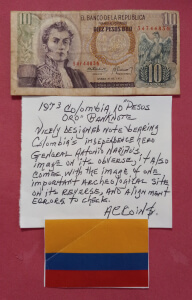 10
EL BANCO DE LA REPUBLICA
DIEZ PESOS ORO
10
1973 Colombia 10 Pesos
ORO Banknote
Nicely designed note bearing
Colombia's independence hero
General Antonio Nariño's
image on its obverse, it also
comes with the image of one
important archeological site
on its reverse, and alignment
errors to check.